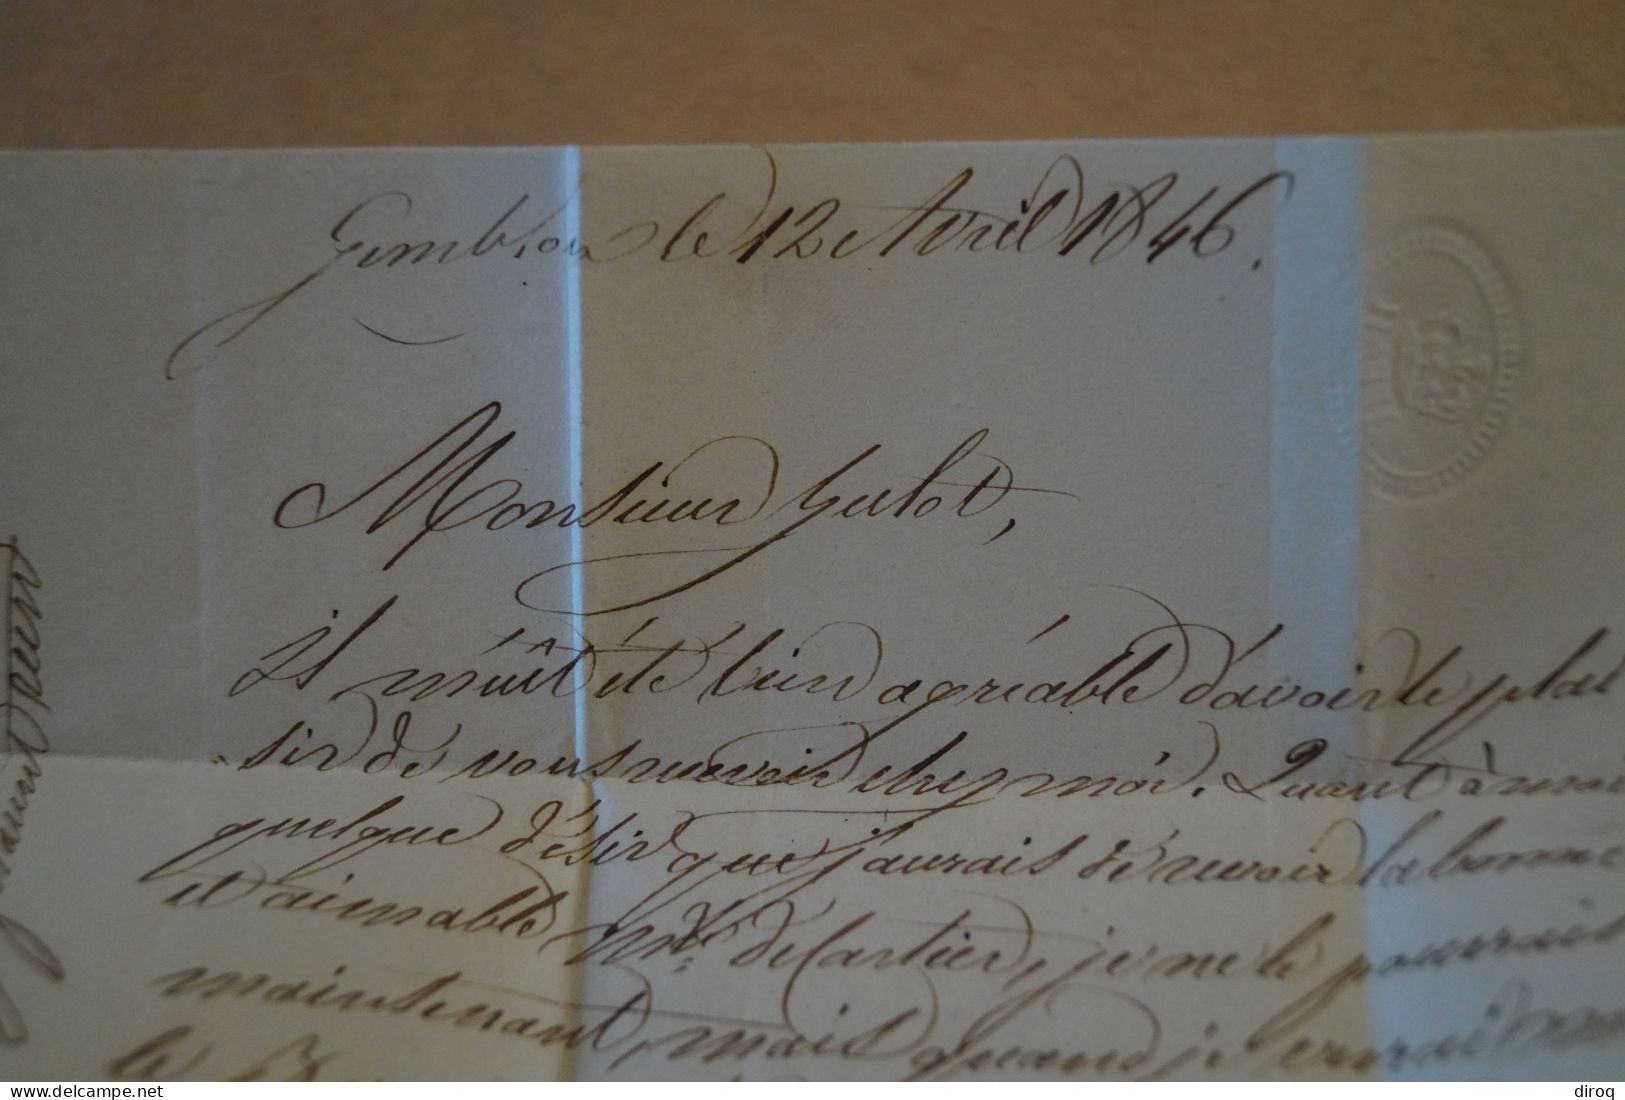 Gembloux le 12 Avril 1846.
Monsieur Gulot,
Il m'eût été bien agréable d'avoir le plai
sir de vous revoir chez moi. Quant à moi
quelque désir que j'aurais de revoir la bonne
et aimable Mme de Cartier, je ne le pourrais
maintenant, mais quand je
le
delcampe.net
diroq